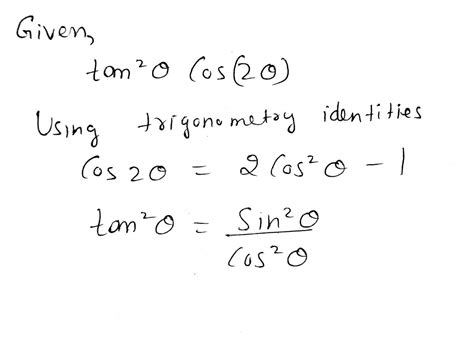 Given,
tan²θ Cos(2θ)
Using trigonometry identities
Cos 2θ = 2 Cos²θ - 1
tan²θ = Sin²θ
Cos²θ